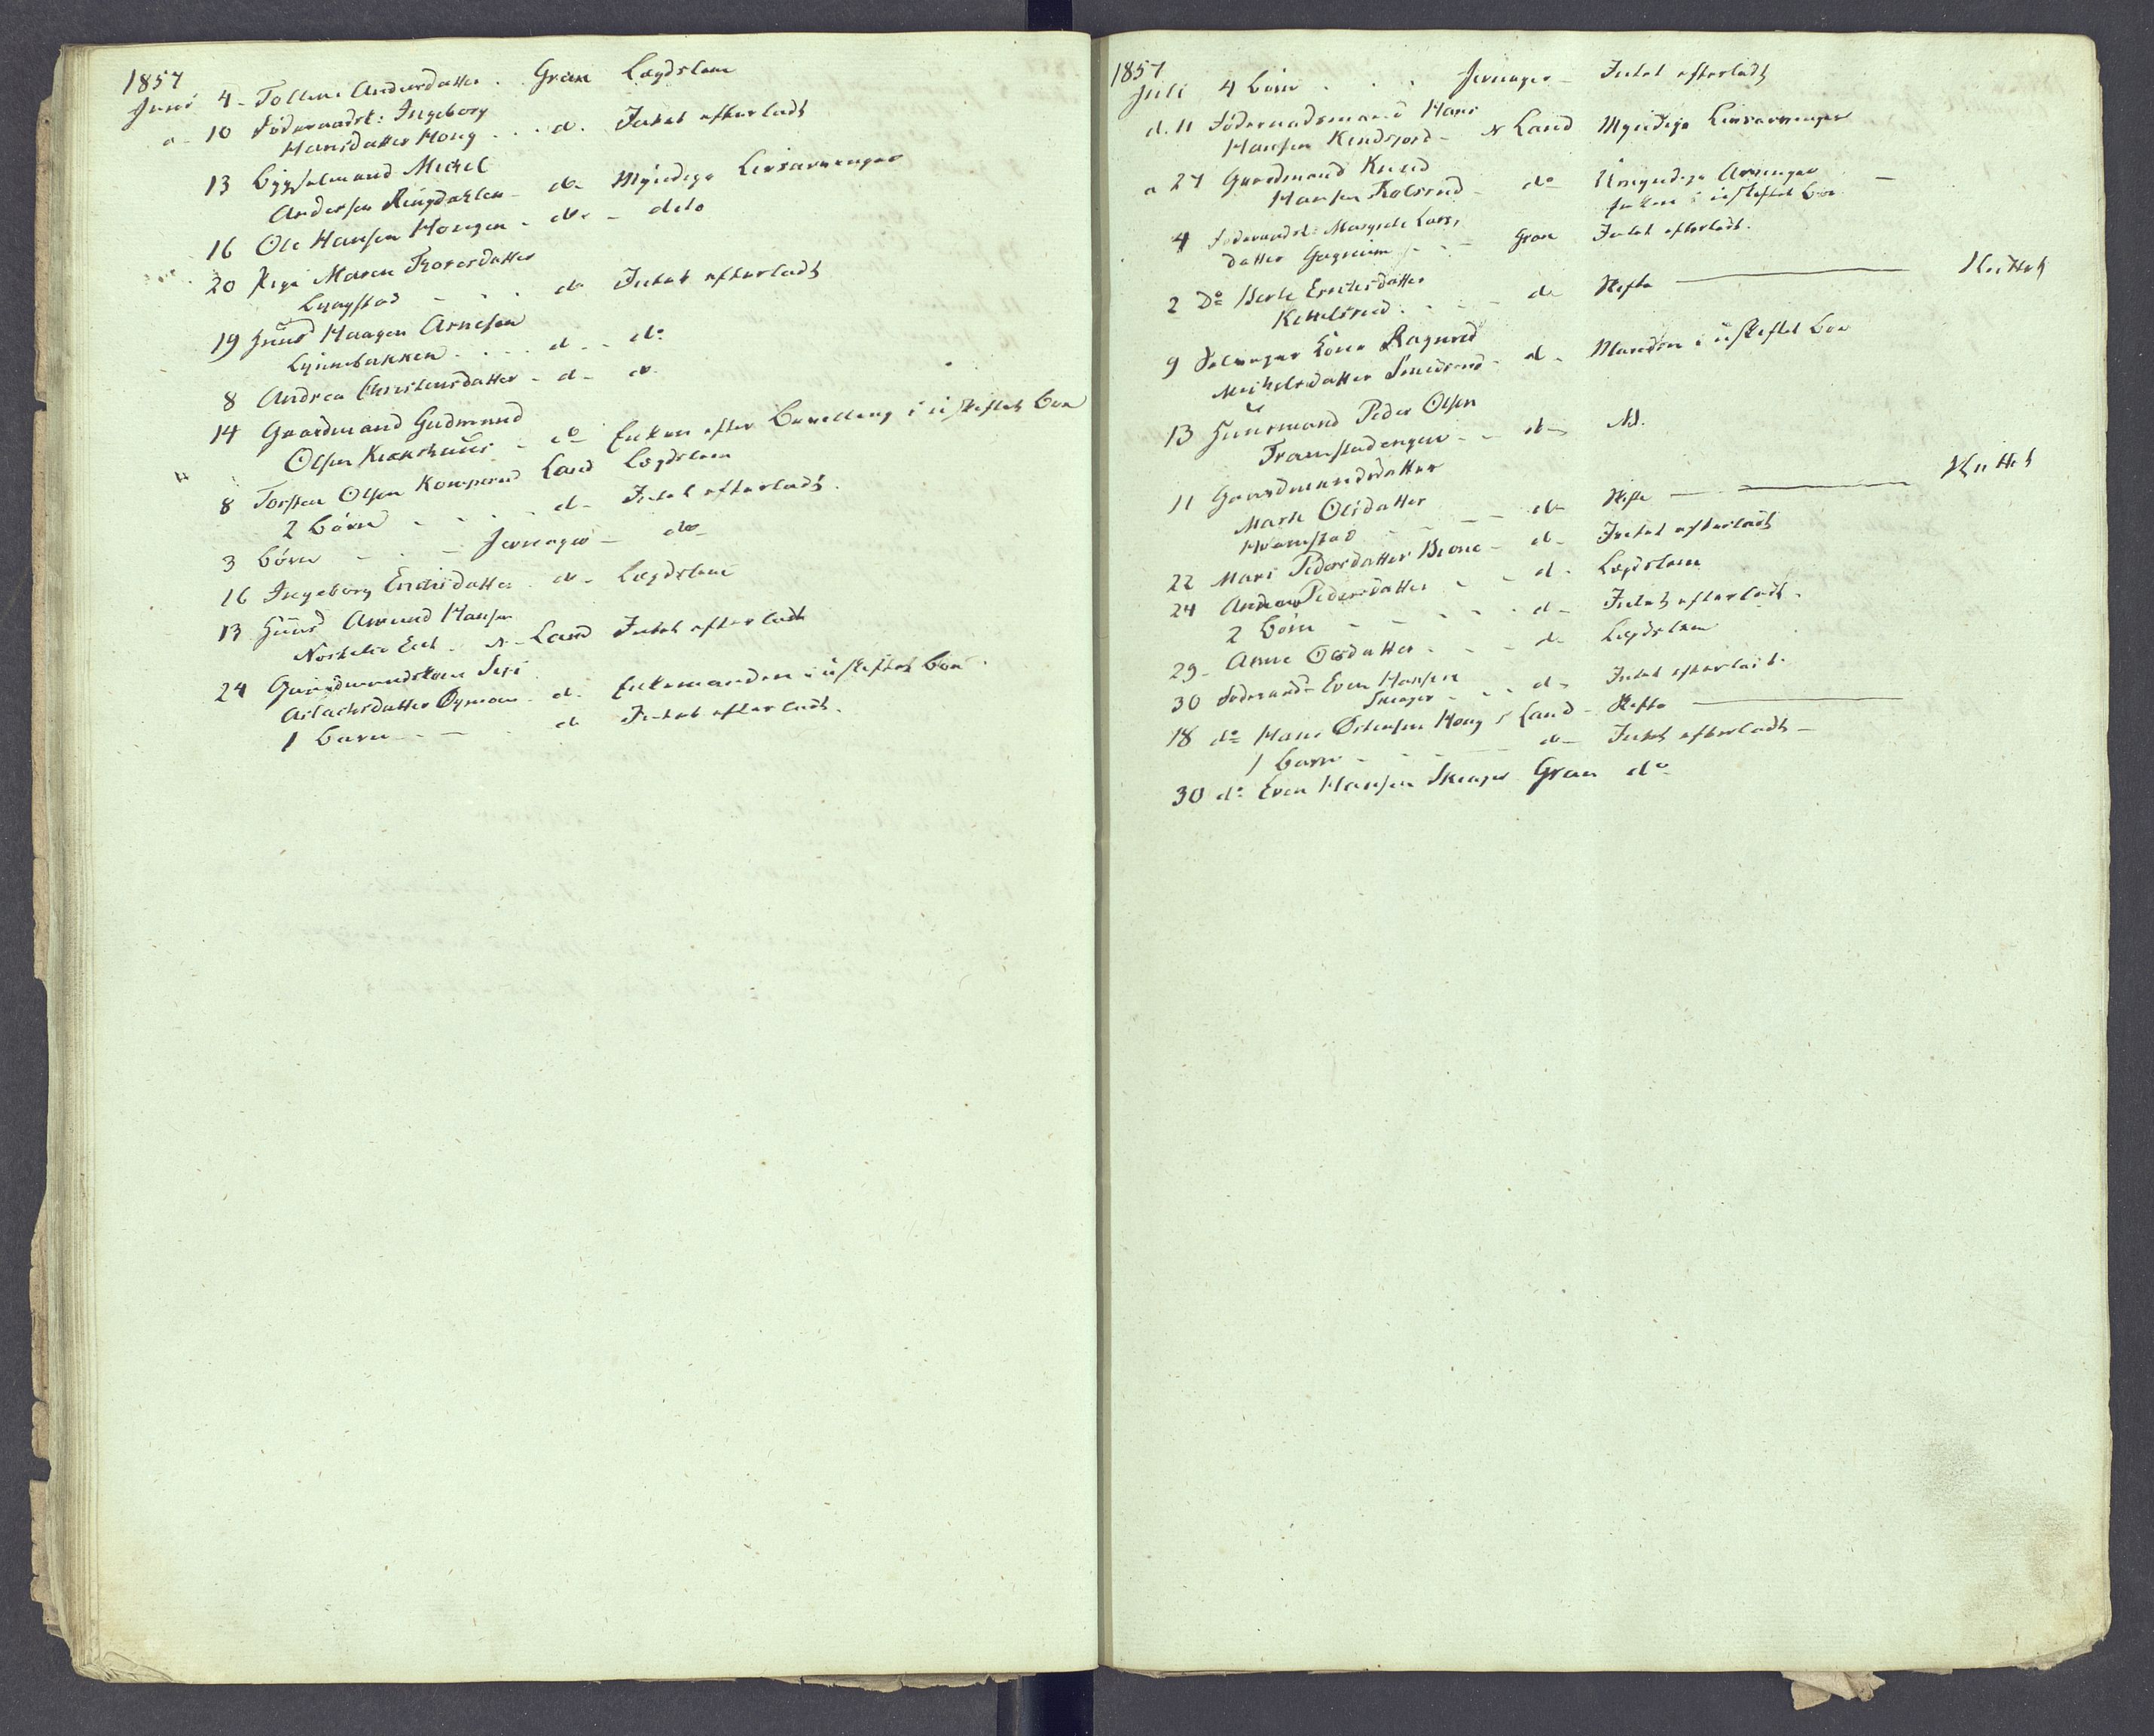 1857
Juni 4 - Andersdatter . Gran Lægdslem
a - 10 Föderaadsk: Ingeborg
Hansdatter Houg . . . d. Intet efterladt
13 Bygselmand Michel
Andersen Ringdahlen - do - Myndige Livsarvinger
16 Ole Hansen Hougen - do - - dito
20 Pige Maren Thorersdatter
Lyngstad - - - do Intet efterladt
19 Huusm Haagen Arnesen
Lynnebakken . . . . d. . do
8 Andrea Christensdatter - d - do
14 Gaardmand Gudmund
Olsen - do Enken efter Bevilling i uskiftet Boe
8 Torsten Olsen Land Lægdslem
2 Börn - - - - d - Intet efterladt .
3 Börn - - - Jevnager - do -
16 Ingeborg Erichsdatter - do - Lægdslem
13 Huusm Amund Hansen
N - Land Intet efterladt
24 Gaardmandskone Siri
Aslachsdatter - d - Enkemanden i uskiftet Boe .
1 Barn - - - do Intet efterladt .
1857
Juli 4 Börn . . . Jevnager - Intet efterladt
d. 11 Föderaadsmand Hans
Hansen - N Land Myndige Livsarvinger
a 27 Gaardmand Knud
Hansen - do Umyndige Arvinger
Enken i uskiftet Boe -
4 Föderaadsk: Margrete Lars,
datter - - - Gran Intet efterladt .
2 Do Berte Erichsdatter
Kittelsrud . - - - do Skifte Sluttet
9 Selveyer Kone Ragnild
Michelsdatter Smedsrud - d - Manden i uskiftet Boe
13 Huusmand Peder Olsen
Framstadengen - - do - Nl.
11 Gaardmandsdatter
Marte Olsdatter
Hvamstad - - - do - Skifte Sluttet
22 Mari Pedersdatter - d - Intet efterladt
24 Andrea Pedersdatter - - d - Lægdslem
2 Börn - - - - d - Intet efterladt .
29 - Anne Olsdatter . - - do Lægdslem
30 Föderaadsm Even Hansen
- - - d - Intet efterladt .
18 do Hans Ostensen Houg S Land - Skifte
1 Barn - - - do - Intet efterladt -
30 do Even Hansen Gran do